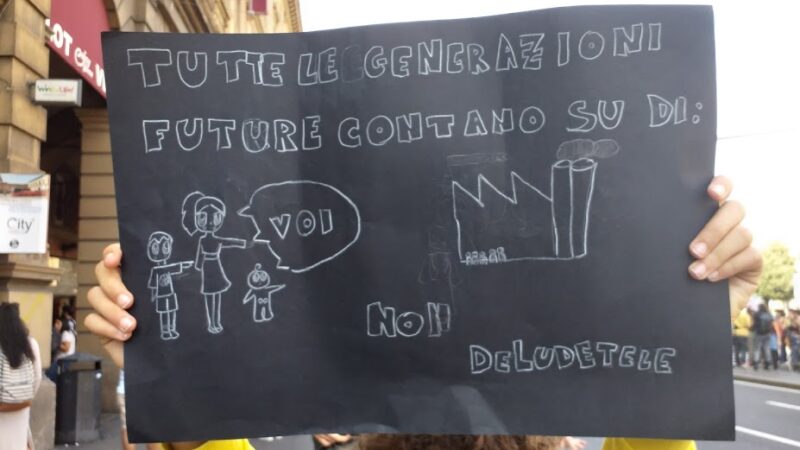 TUTTE LE GENERAZIONI
FUTURE CONTANO SU DI:
VOI
NON
DELUDETELE
City